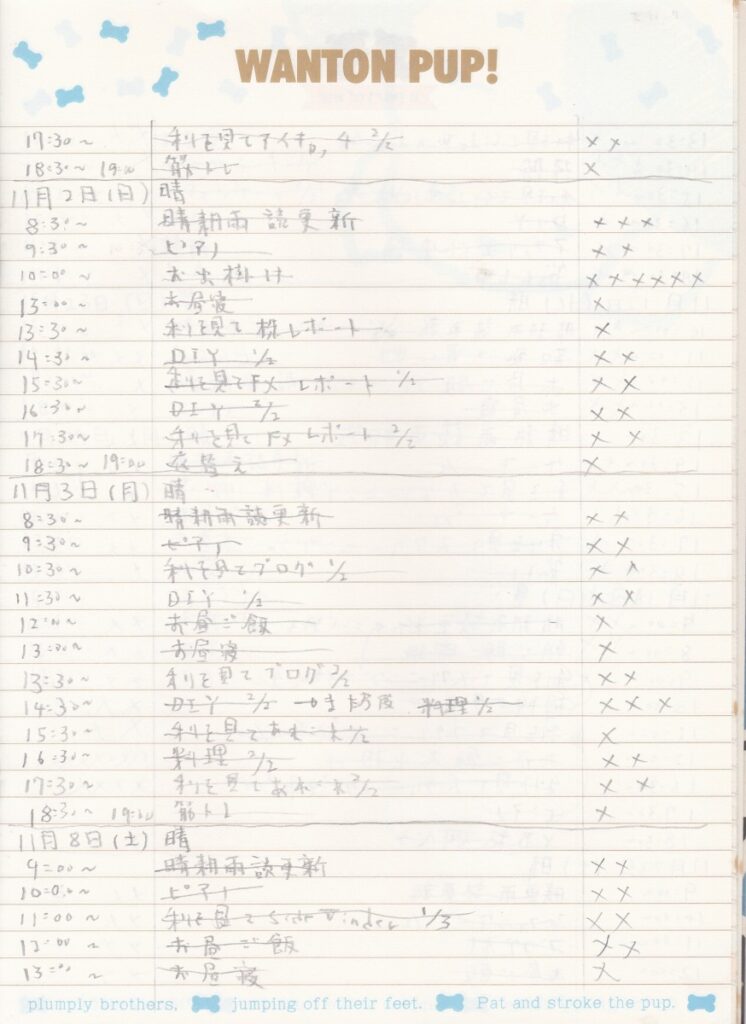 WANTON PUP!
17:30~ 利を見て 2/2 × ×
18:30~ 19:00 筋トレ ×
11月2日(日) 晴
8:30~ 晴耕雨読更新 × × ×
9:30~ ピアノ × ×
10:00~ お出掛け × × × × × ×
13:00~ お昼寝 ×
13:30~ 利を見て 株レポート ×
14:30~ DIY 1/2 × ×
15:30~ 利を見てFX レポート 1/2 × ×
16:30~ DIY 2/2 × ×
17:30~ 利を見て FX レポート 2/2 × ×
18:30~ 19:00 衣替え ×
11月3日(月) 晴
8:30~ 晴耕雨読更新 × ×
9:30~ ピアノ × ×
10:30~ 利を見てブログ 1/2 × ×
11:30~ DIY 1/2 × ×
12:00~ お昼ご飯 ×
13:00~ お昼寝 ×
13:30~ 利を見てブログ 2/2 × ×
14:30~ DIY 2/2 料理 1/2 × × ×
15:30~ 利を見てあれこれ 1/2 ×
16:30~ 料理 2/2 × ×
17:30~ 利を見てあれこれ 2/2 × ×
18:30~ 19:00 筋トレ ×
11月8日(土) 晴
9:00~ 晴耕雨読更新 × ×
10:00~ ピアノ × ×
11:00~ 利を見て Side Winder 1/3 × ×
12:00~ お昼ご飯 × ×
13:00~ お昼寝 ×
plumply brothers. jumping off their feet. Pat and stroke the pup.